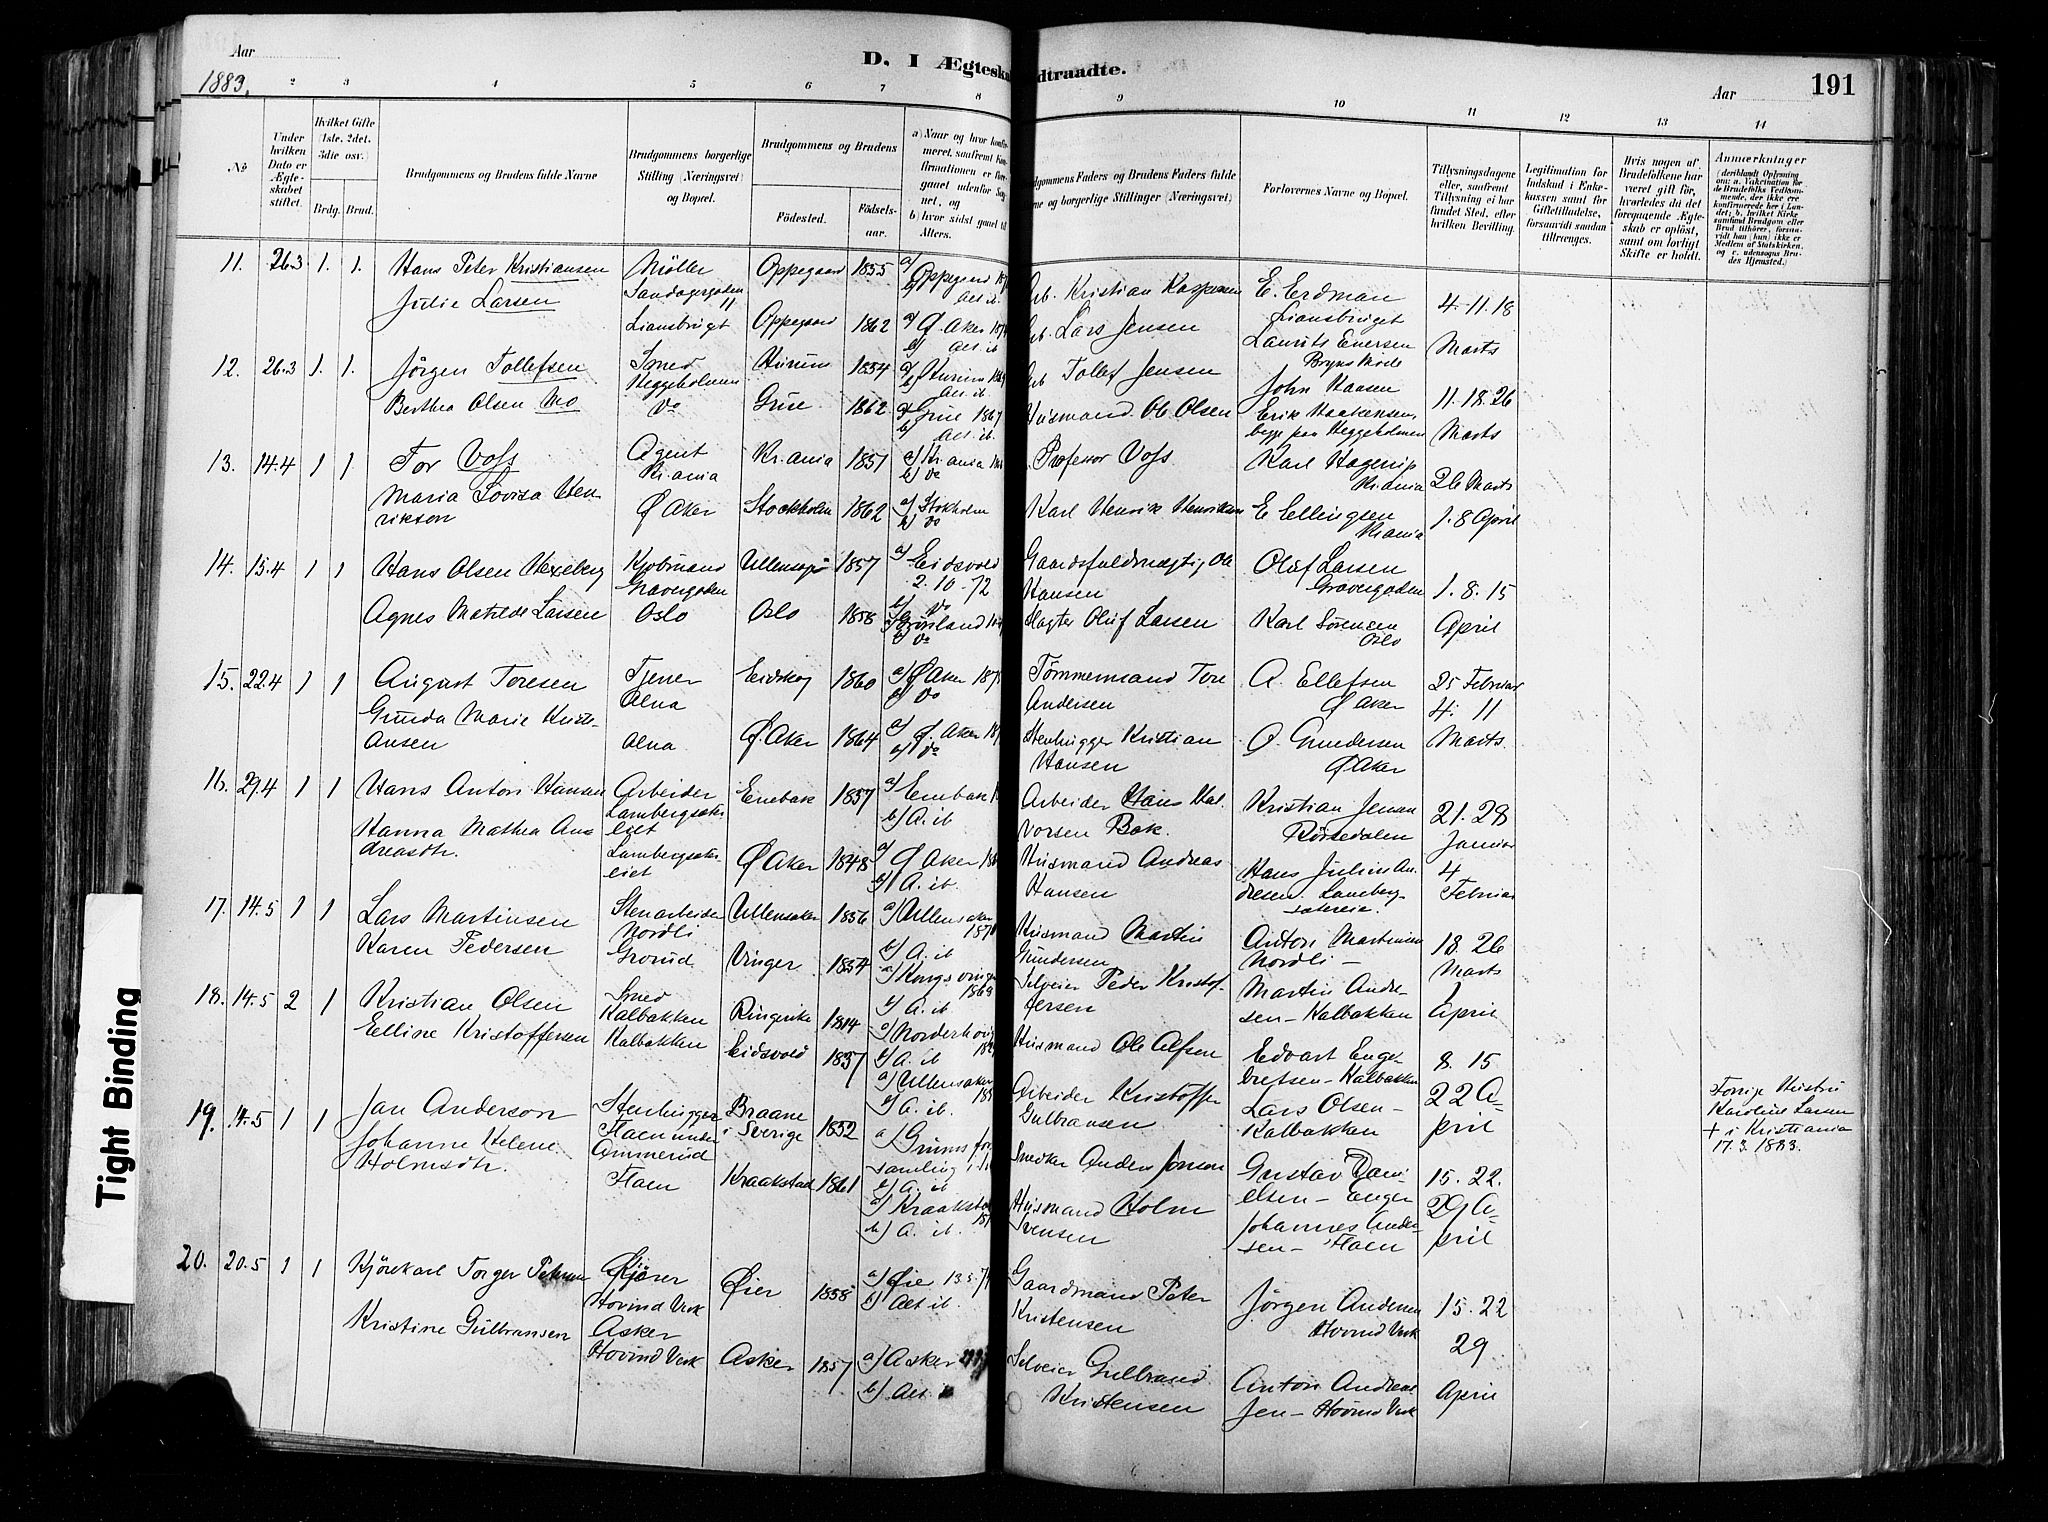 Aar
1883.
D. I Ægteska
dtraadte.
Aar
191
2 3 4 5 6 7 8 9 10 11 12 13 14
No
Under hvilken Dato er Ægteskabet stiftet.
Hvilket Gifte (1ste, 2det, 3die osv.)
Brdg. Brud.
Brudgommens og Brudens fulde Navne
Brudgommens borgerlige Stilling (Næringsvei) og Bopæl.
Brudgommens og Brudens
Födested.
Födselsaar.
a) Naar og hvor konfirmeret, saafremt Konfirmationen er foregaaet udenfor Sognet, og
b) hvor sidst gaaet til Alters.
dgommens Faders og Brudens Faders fulde
ne og borgerlige Stillinger (Næringsvei)
Forlovernes Navne og Bopæl.
Tillysningsdagene eller, saafremt Tillysning ei har fundet Sted, efter hvilken Bevilling.
Legitimation for Indskud i Enkekassen samt for Giftetilladelse, forsaavidt saadan tiltrænges.
Hvis nogen af Brudefolkene har været gift før, hvorledes da det foregaaende Ægteskab er oplöst, samt om lovligt Skifte er holdt.
Anmærkninger
11. 26.3 1. 1. Hans Peter Kristiansen Möller Oppegaard 1855 a) Oppegaard
Sandagergaden 11
Arb. Kristian Kaspersen E. Erdman
Liansbruget 4. 11. 18
Julie Larsen Liansbruget Oppegaard 1862 a) Ø. Aker
b) Alt. ib
Arb. Lars Jensen Laurits Evensen Marts
12. 26.3 1. 1. Jörgen Tollefsen Smed Hurum 1854 a) Hurum
Heggeholmen b) Alt. ib
Arb Tollef Jensen John Hansen 11. 18. 26
Berthea Olsen Mo Do Grue 1862 a) Grue 1867
b) Alt. ib.
Husmand Ole Olsen Erik Haakensen, begge paa Heggeholmen Marts
13. 14.4 1 1. Tor Voss Agent Kr.ania Kr.ania 1857 a) Kr.ania
b) Do
Professor Voss Karl Hagerup Kr.ania 26 Marts
Maria Lovisa Henrikson Ø Aker Stockholm 1862 a) Stokholm
b) Do
Karl Henrik Henrikson E Ellingsen Kr.ania 1. 8 April
14. 15.4 1 1 Hans Olsen Hexeberg Kjöbmand Ullensaker 1857 a) Eidsvold
2. 10. 72
b) Do
Gaardsfuldmægtig Ole Hansen Olaf Larsen 1. 8. 15
Agnes Matilde Larsen Oslo Oslo 1858 a) Grönland
b) Do
Slagter Oluf Larsen Karl Sörensen Oslo April
15. 22.4 1 1 August Toresen Tjener Alna Eidskog 1860 a) Ø Aker
b) Do
Tömmermand Tore Andersen A. Ellefsen Ø Aker 25 Februar 4. 11
Gunda Marie Kristiansen Alna Ø. Aker 1864 a) Ø. Aker
b) Do
Stenhugger Kristian Hansen O. Gundersen Ø Aker Marts.
16. 29.4 1 1 Hans Anton Hansen Arbeider Enebak 1857 a) Enebak
Lambergsæterleiet b) A. ib
Arbeider Hans Halvorsen Bak. Kristian Jensen 21. 28 Januar
Hanna Mathea Andreasdtr. Lambergsæterleiet Ø Aker 1848 a) Ø Aker
b) A. ib.
Husmand Andreas Hansen Hans Julius Andresen Lambergsætereie. 4 Februar
17. 14.5 1 1 Lars Martinsen Stenarbeider Nordli Ullensaker 1856 a) Ullensaker
b) A. ib
Husmand Martin Gundersen Anton Martinsen Nordli – 18. 26 Marts
Karen Pedersen Grorud Vinger 1854 a) Kongsvinger 1869
b) A. ib.
Selveier Peder Kristoffersen Martin Andresen – Kalbakken 1 April
18. 14.5 2 1 Kristian Olsen Smed Kalbakken Ringerike 1814 a) Norderhov
b) A. ib
Husmand Ole Olsen Edvart Engebretsen – Kalbakken 8. 15
Elline Kristoffersen Kalbakken Eidsvold 1837 a) Ullensaker
b) A. ib.
Arbeider Kristoffer Gulbransen Lars Olsen – Kalbakken 22 April
Forrige Hustru
Karoline Larsen
+ i Kristiania
17. 3. 1883.
19. 14.5 1 1 Jan Anderson Stenhugger Flaen under Ammerud Braane i Sverige 1852 a) Grums forsamling
b) A. ib
Snedker Anders Jonson Gustav Danielsen – Enger 15. 22.
Johanne Helene Holmsdtr. Flaen Kraakstad 1861 a) Kraakstad
b) A. ib.
Husmand Holm Svensen Johannes Andersen – Flaen 29 April
20. 20.5 1 1 Kjörekarl Torger Petersen Kjörer Hovind Verk Øier 1858 a) Øier
b) Alt ib.
Gaardmand Peter Kristensen Jörgen Andersen Hovind Verk 15. 22
Kristine Gulbransen Asker Hovind Verk Asker 1857 a) Asker
b) Alt
Selveier Gulbrand Kristensen Anton Andreasen – Hovind Verk 29 April
Tight Binding